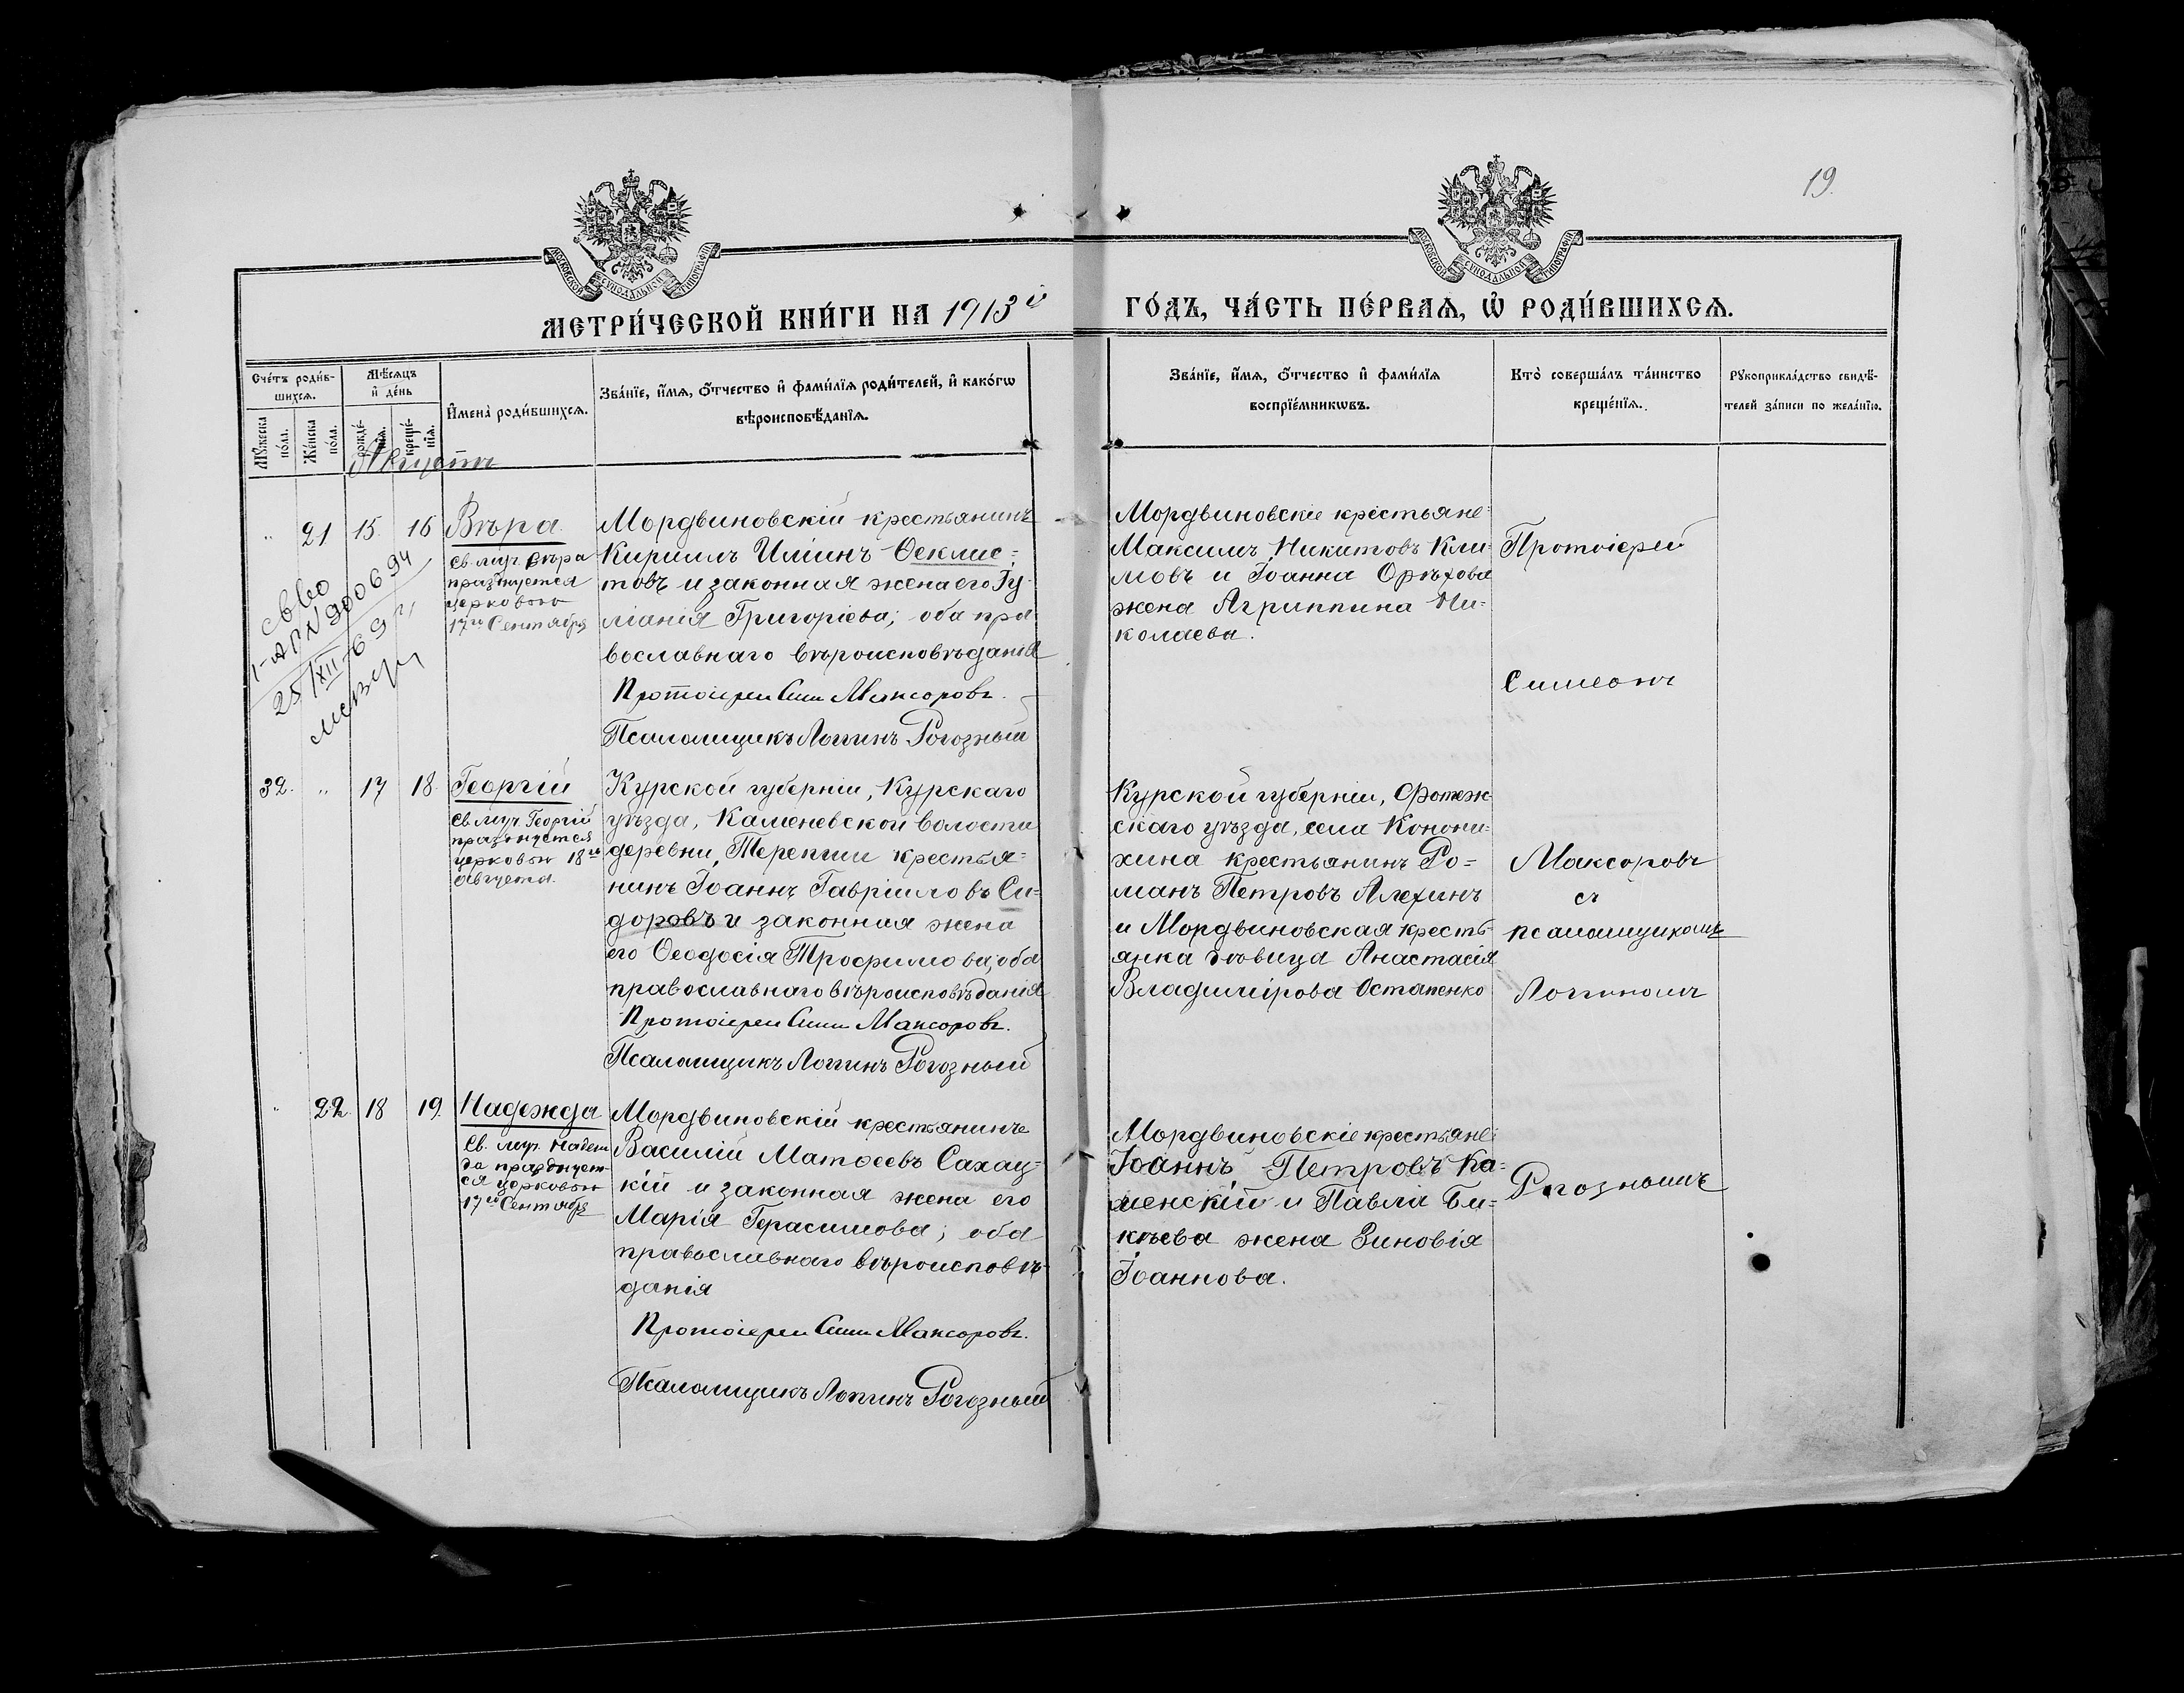 19.
МОСКОВСКОЙ СѴНОДАЛЬНОЙ ТИПОГРАФІИ
МОСКОВСКОЙ СѴНОДАЛЬНОЙ ТИПОГРАФІИ
МЕТРИ́ЧЕСКОЙ КНИ́ГИ НА 1913й
ГО́ДЪ, ЧА́СТЬ ПЕ́РВАѦ, Ѡ҆ РОДИ́ВШИХСѦ.
Сче́тъ роди́в-
шихсѧ.
Мꙋ́жеска по́ла.
Же́нска по́ла.
Мѣ́сѧцъ
и҆ де́нь
рожде́-нїѧ.
креще́-нїѧ.
И҆мена̀ роди́вшихсѧ.
Зва́нїе, и҆́мѧ, ѻ҆́тчество и҆ фами́лїѧ роди́телей, и҆ како́гѡ
вѣроисповѣ́данїѧ.
Зва́нїе, и҆́мѧ, ѻ҆́тчество и҆ фами́лїѧ
воспрїе́мникѡвъ.
Кто̀ соверша́лъ та́инство
креще́нїѧ.
Рꙋкоприкла́дство свидѣ́-
телей за́писи по жела́нїю.
Августъ
„ 21 15. 16 Вѣра
Св. муч. Вѣра
празнуется
церковью
17го Сентября
св-во
I-АР N 900694
25/XII-69 г
Мордвиновскій крестьянинъ
Кириллъ Иліинъ Ѳеклис=
товъ и законная жена его Іу-
ліанія Григоріева; оба пра-
вославнаго вѣроисповѣданія
Протоіерей Сим Максоровъ.
Псаломщикъ Логгинъ Рогозный
Мордвиновскіе крестьяне:
Максимъ Никитовъ Кли-
мовъ и Іоанна Орѣхова
жена Агриппина Ни=
колаева.
Протоіерей
Симеонъ
32. „ 17 18. Георгій
Св. муч. Георгій
празднуется
церковью 18го
августа.
Курской губерніи, Курскаго
уѣзда, Каменевской волости
деревни, Терепши крестья=
нинъ Іоаннъ Гавріиловъ Си=
доровъ и законная жена
его Ѳеодосія Трофимова; оба
православнаго вѣроисповѣданія
Протоіерей Сим Максоровъ.
Псаломщикъ Логгинъ Рогозный
Курской губерніи, Фатеж-
скаго уѣзда, села Конони-
хина крестьянинъ Ро=
манъ Петровъ Алехинъ
и Мордвиновская кресть-
янка дѣвица Анастасія
Владимірова Остапенко
Максоровъ
съ
псаломщикомъ
Логгиномъ
„ 22. 18 19. Надежда
Св. муч. Надеж
да празднует-
ся церковью
17го Сентября
Мордвиновскій крестьянинъ
Василій Матѳеевъ Сахац=
кій и законная жена его
Марія Герасимова; оба
православнаго вѣроисповѣ-
данія
Протоіерей Сим Максоровъ.
Псаломщикъ Логгинъ Рогозный
Мордвиновскіе крестьяне:
Іоаннъ Петровъ Ка=
менскій и Павла Би=
кѣева жена Зиновія
Іоаннова.
Рогознымъ